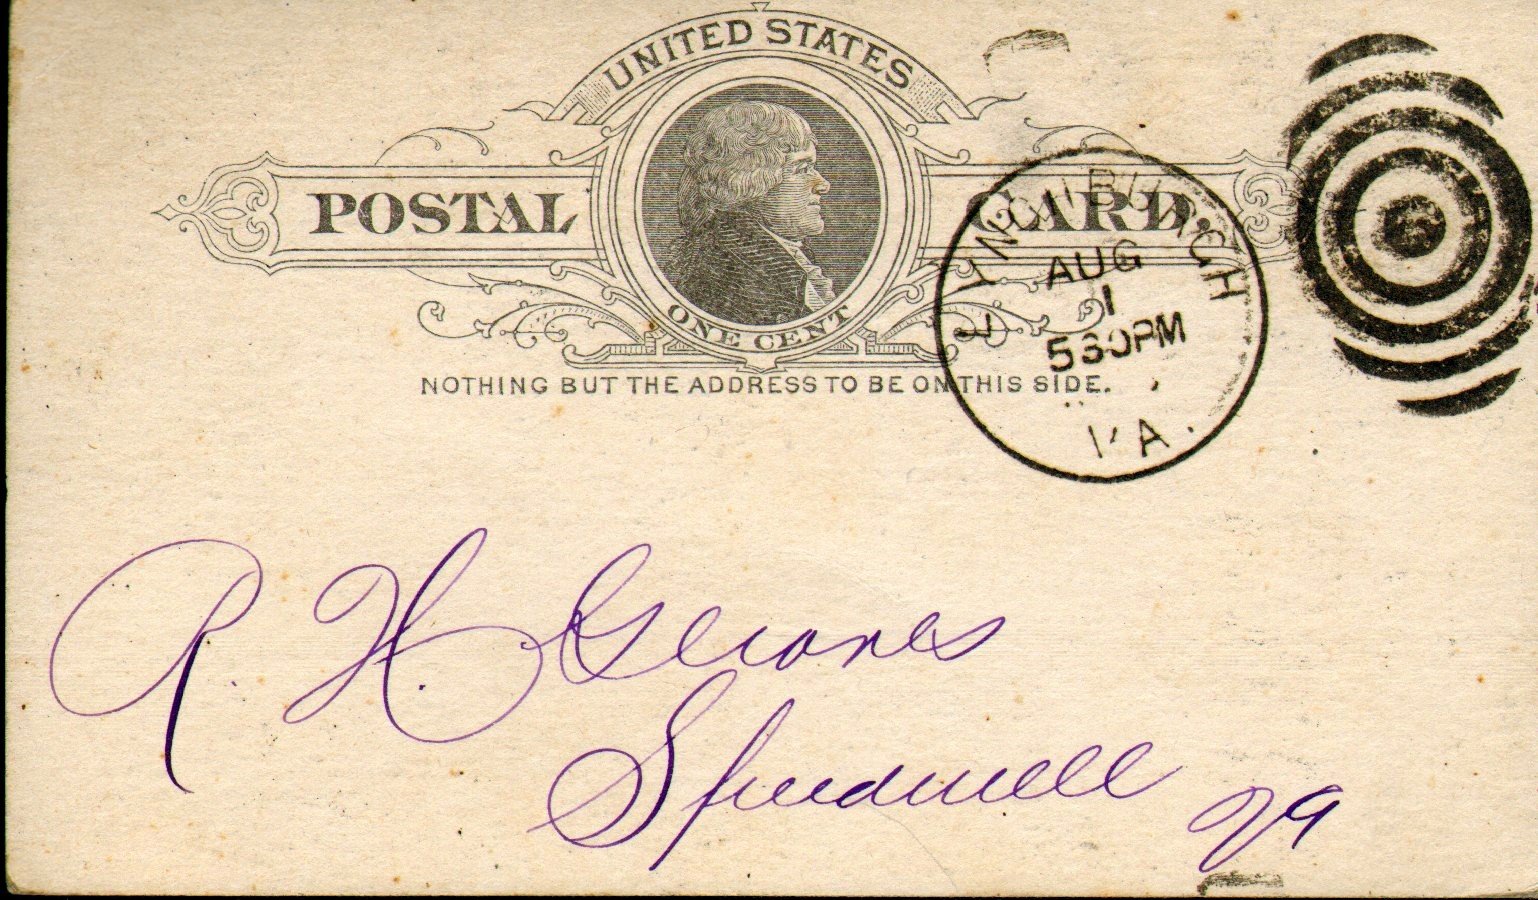 UNITED STATES
POSTAL CARD.
ONE CENT
NOTHING BUT THE ADDRESS TO BE ON THIS SIDE.
LYNCHBURGH
AUG
1
530PM
VA.
R. H.
Speedwell Va